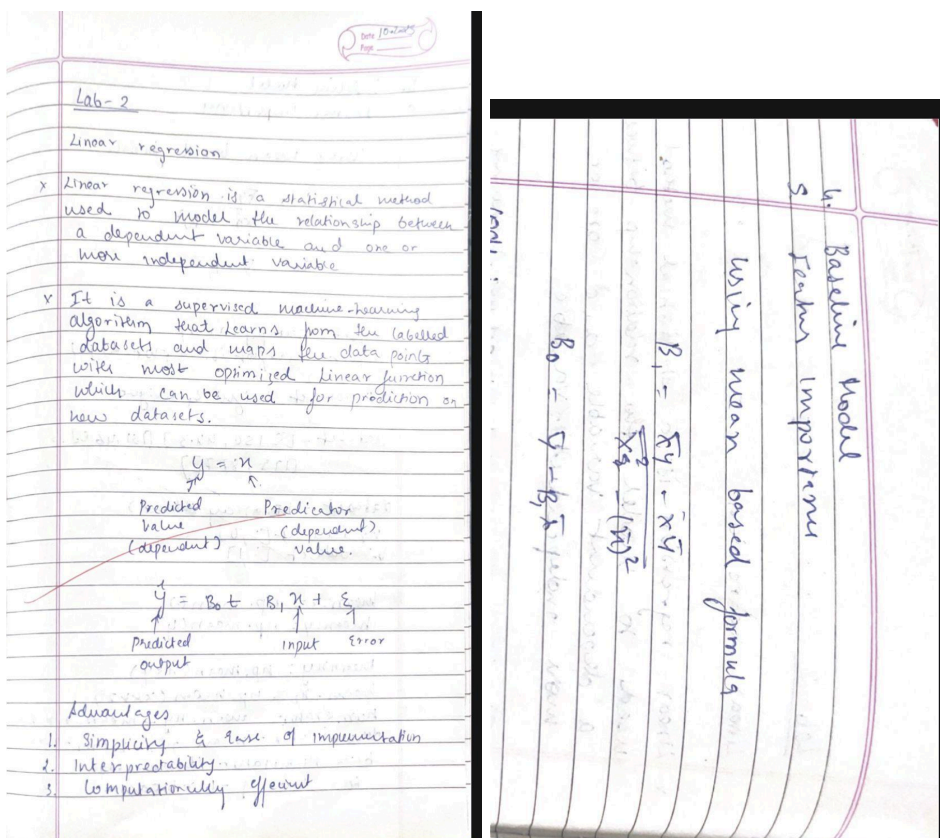 Date
Page
Lab-2
Linear regression
x Linear regression is a statistical method
used to model the relationship between
a dependent variable and one or
more independent variable
x It is a supervised machine-learning
algorithm that learns from the labelled
datasets and maps the data points
with most optimized linear function
which can be used for prediction on
new datasets.
y = x
Predicted Predicator
value (dependent)
(dependent) value.
ŷ = B₀ + B₁ x + ξ
Predicted input Error
output
Advantages
1. Simplicity & Ease of implementation
2. Interpretability
3. Computationally efficient
4. Baseline Model
5 Feature Importance
Using mean based formula
B₁ = x̄y - x̄ȳ
x̄² - (x̄)²
B₀ = ȳ - B₁x̄